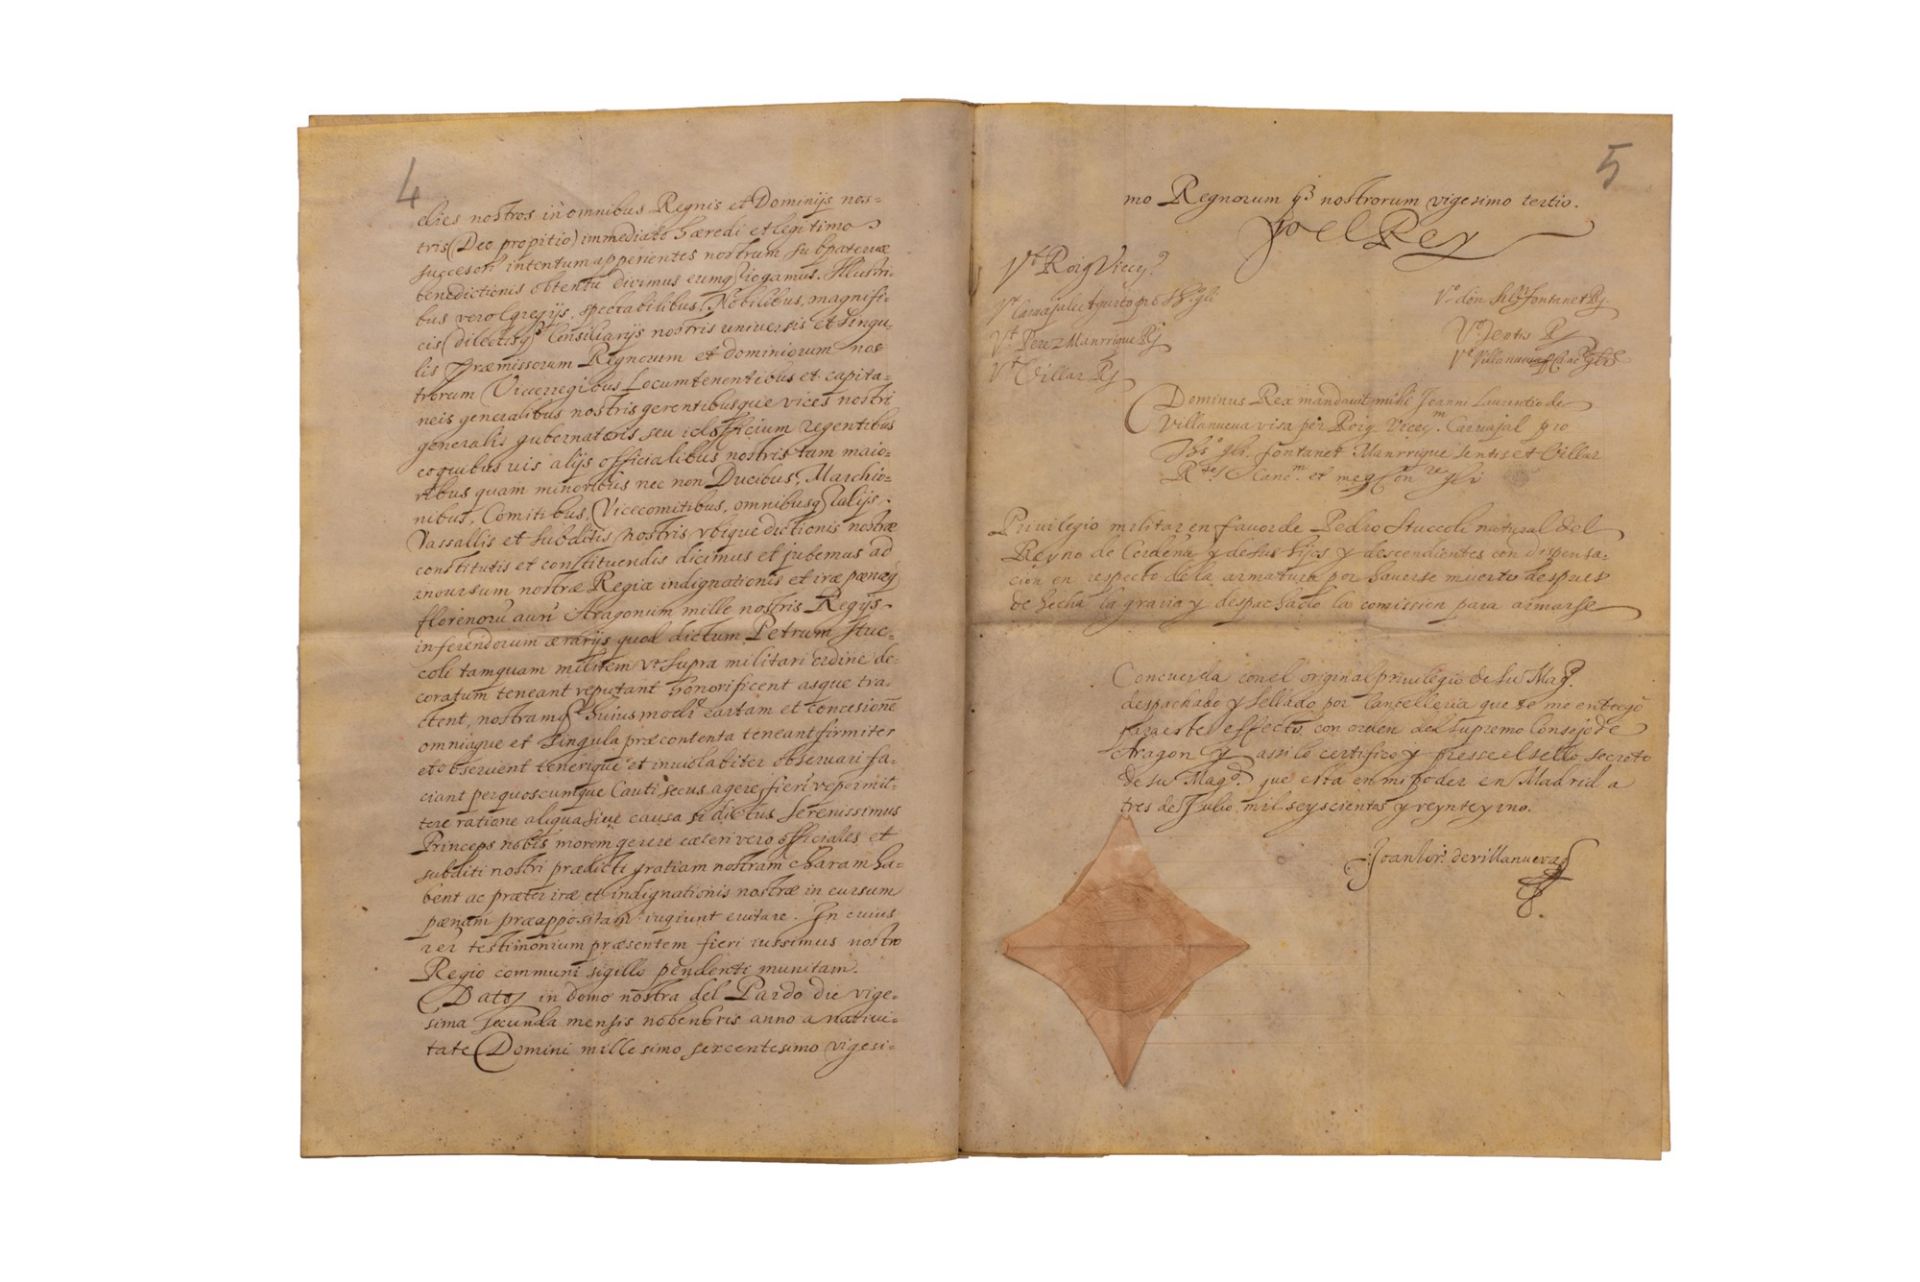 4
dies nostros in omnibus Regnis et Dominijs nos-
tris (Deo propitio) immediato hæredi et legitimo
succesori intentum apperientes nostrum sub paternæ
benedictionis obtentu dicimus eumq rogamus. Illustri-
bus vero Egregijs, spectabilibus, Nobilibus, magnifi-
cis dilectisq Consiliarijs nostris universis et singu-
lis præmissorum Regnorum et dominiorum nos
trorum Vicerregibus Locumtenentibus et capita-
neis generalibus nostris gerentibusque vices nostri
generalis gubernatoris seu id officium regentibus
cæquibus vis alijs officialibus nostris tam maio-
ribus quam minoribus nec non Ducibus, Marchio-
nibus, Comitibus, Vicecomitibus, omnibusq alijs
Vassallis et subditis nostris vbique dictionis nostræ
constitutis et constituendis dicimus et jubemus ad
incursum nostræ Regiæ indignationis et iræ pænæq
florenorũ auri Aragonum mille nostris Regijs
inferendorum ærarijs quod dictum Petrum Stuc-
coli tamquam militem vt supra militari ordine de-
coratum teneant reputant honorificent asque tra-
ctent, nostramq huiusmodi cartam et concesionẽ
omniaque et singula præcontenta teneant firmiter
et observent tenerique et inviolabiter observari fa-
ciant per quoscumque Cauti secus agere, fieri ve permit-
tere ratione aliqua sive causa si dictus Serenissimus
Princeps nobis morem gerere cæteri vero officiales et
subditi nostri prædicti gratiam nostram charam ha-
bent ac præter iræ et indignationis nostræ in cursum
pænam præappositam cugiunt evitare. In cuius
rei testimonium præsentem fieri iussimus nostro
Regio communi sigillo pendenti munitam.
Datz in domo nostra del Pardo die vige-
sima secunda mensis nobenbris anno a nativi-
tate Domini millesimo sexcentesimo vigesi-
5
mo Regnorum q nostrorum vigesimo tertio.
Yo el Rey
Vt Roig Vicecs
Vt Caruajal et
Vt Perez Manrrique Rs
Vt Villar Rs
Vt don fontanet Rs.
Vt Sentis Rs
Vt Villanueua
Dominus Rex mandavit mihi Joanni Laurentio de
Villanueua visa per Roig Vicecm. Caruajal pro
Ths gli. fontanet Manrrique sentis et Villar
Rtes Cancm. et me
Privilegio militar en favor de Pedro Stuccoli natural del
Reyno de Cerdeña y de sus hijos y descendientes con dispensa-
cion en respecto de la armatura por hauerse muerto despues
de hecha la gracia y despachado la comission para armarse
Concuerda con el original privilegio de su Magd.
despachado y sellado por Cancelleria que se me entregó
para este effecto, con orden del Supremo Consejo de
Aragon y assi lo certifico y puse el sello secreto
de su Magd. que esta en mi poder en Madrid a
tres de Julio mil seyscientos y veynte y vno.
Joan lor. de villanueva